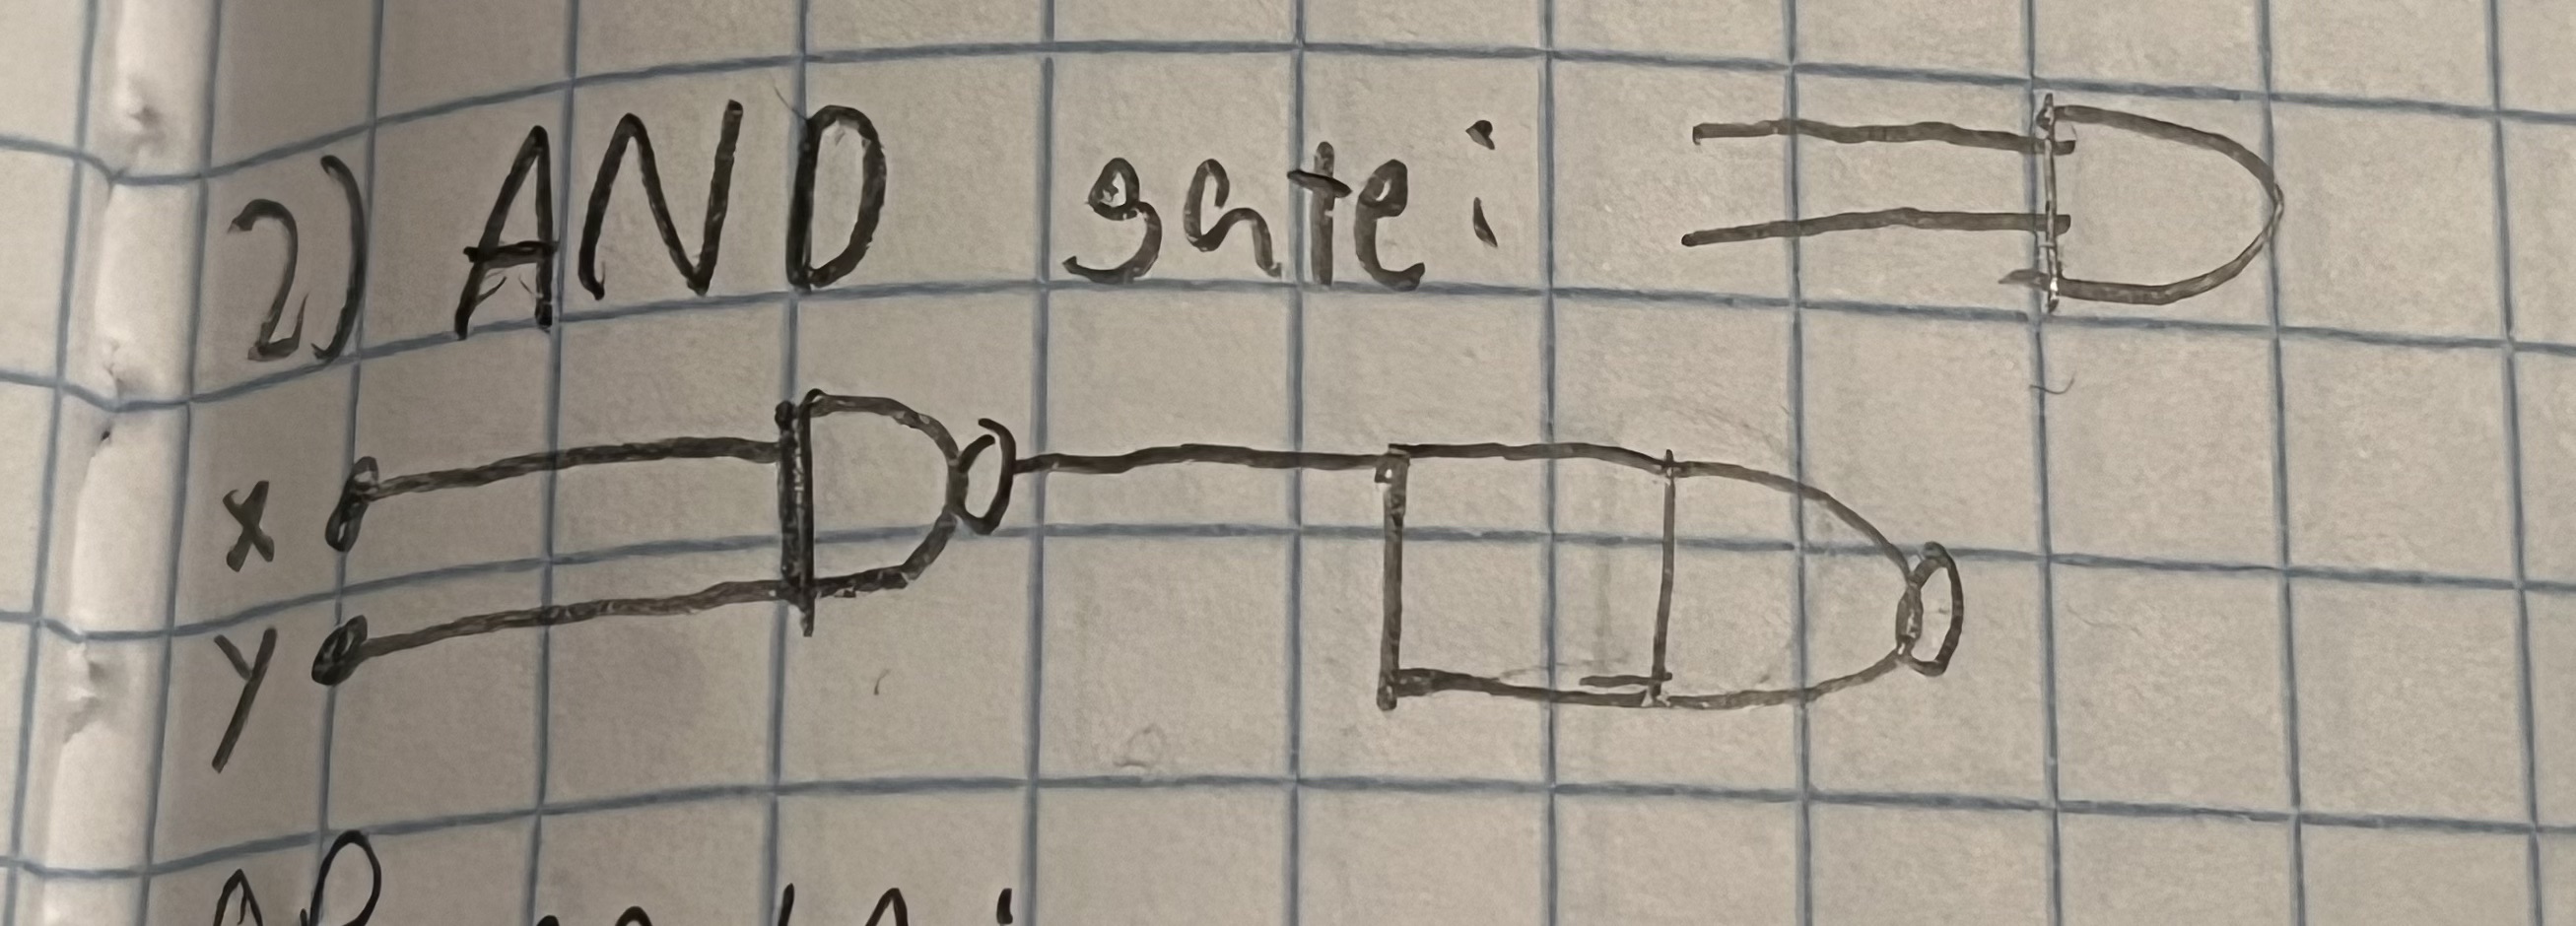 2) AND gate:
x
y